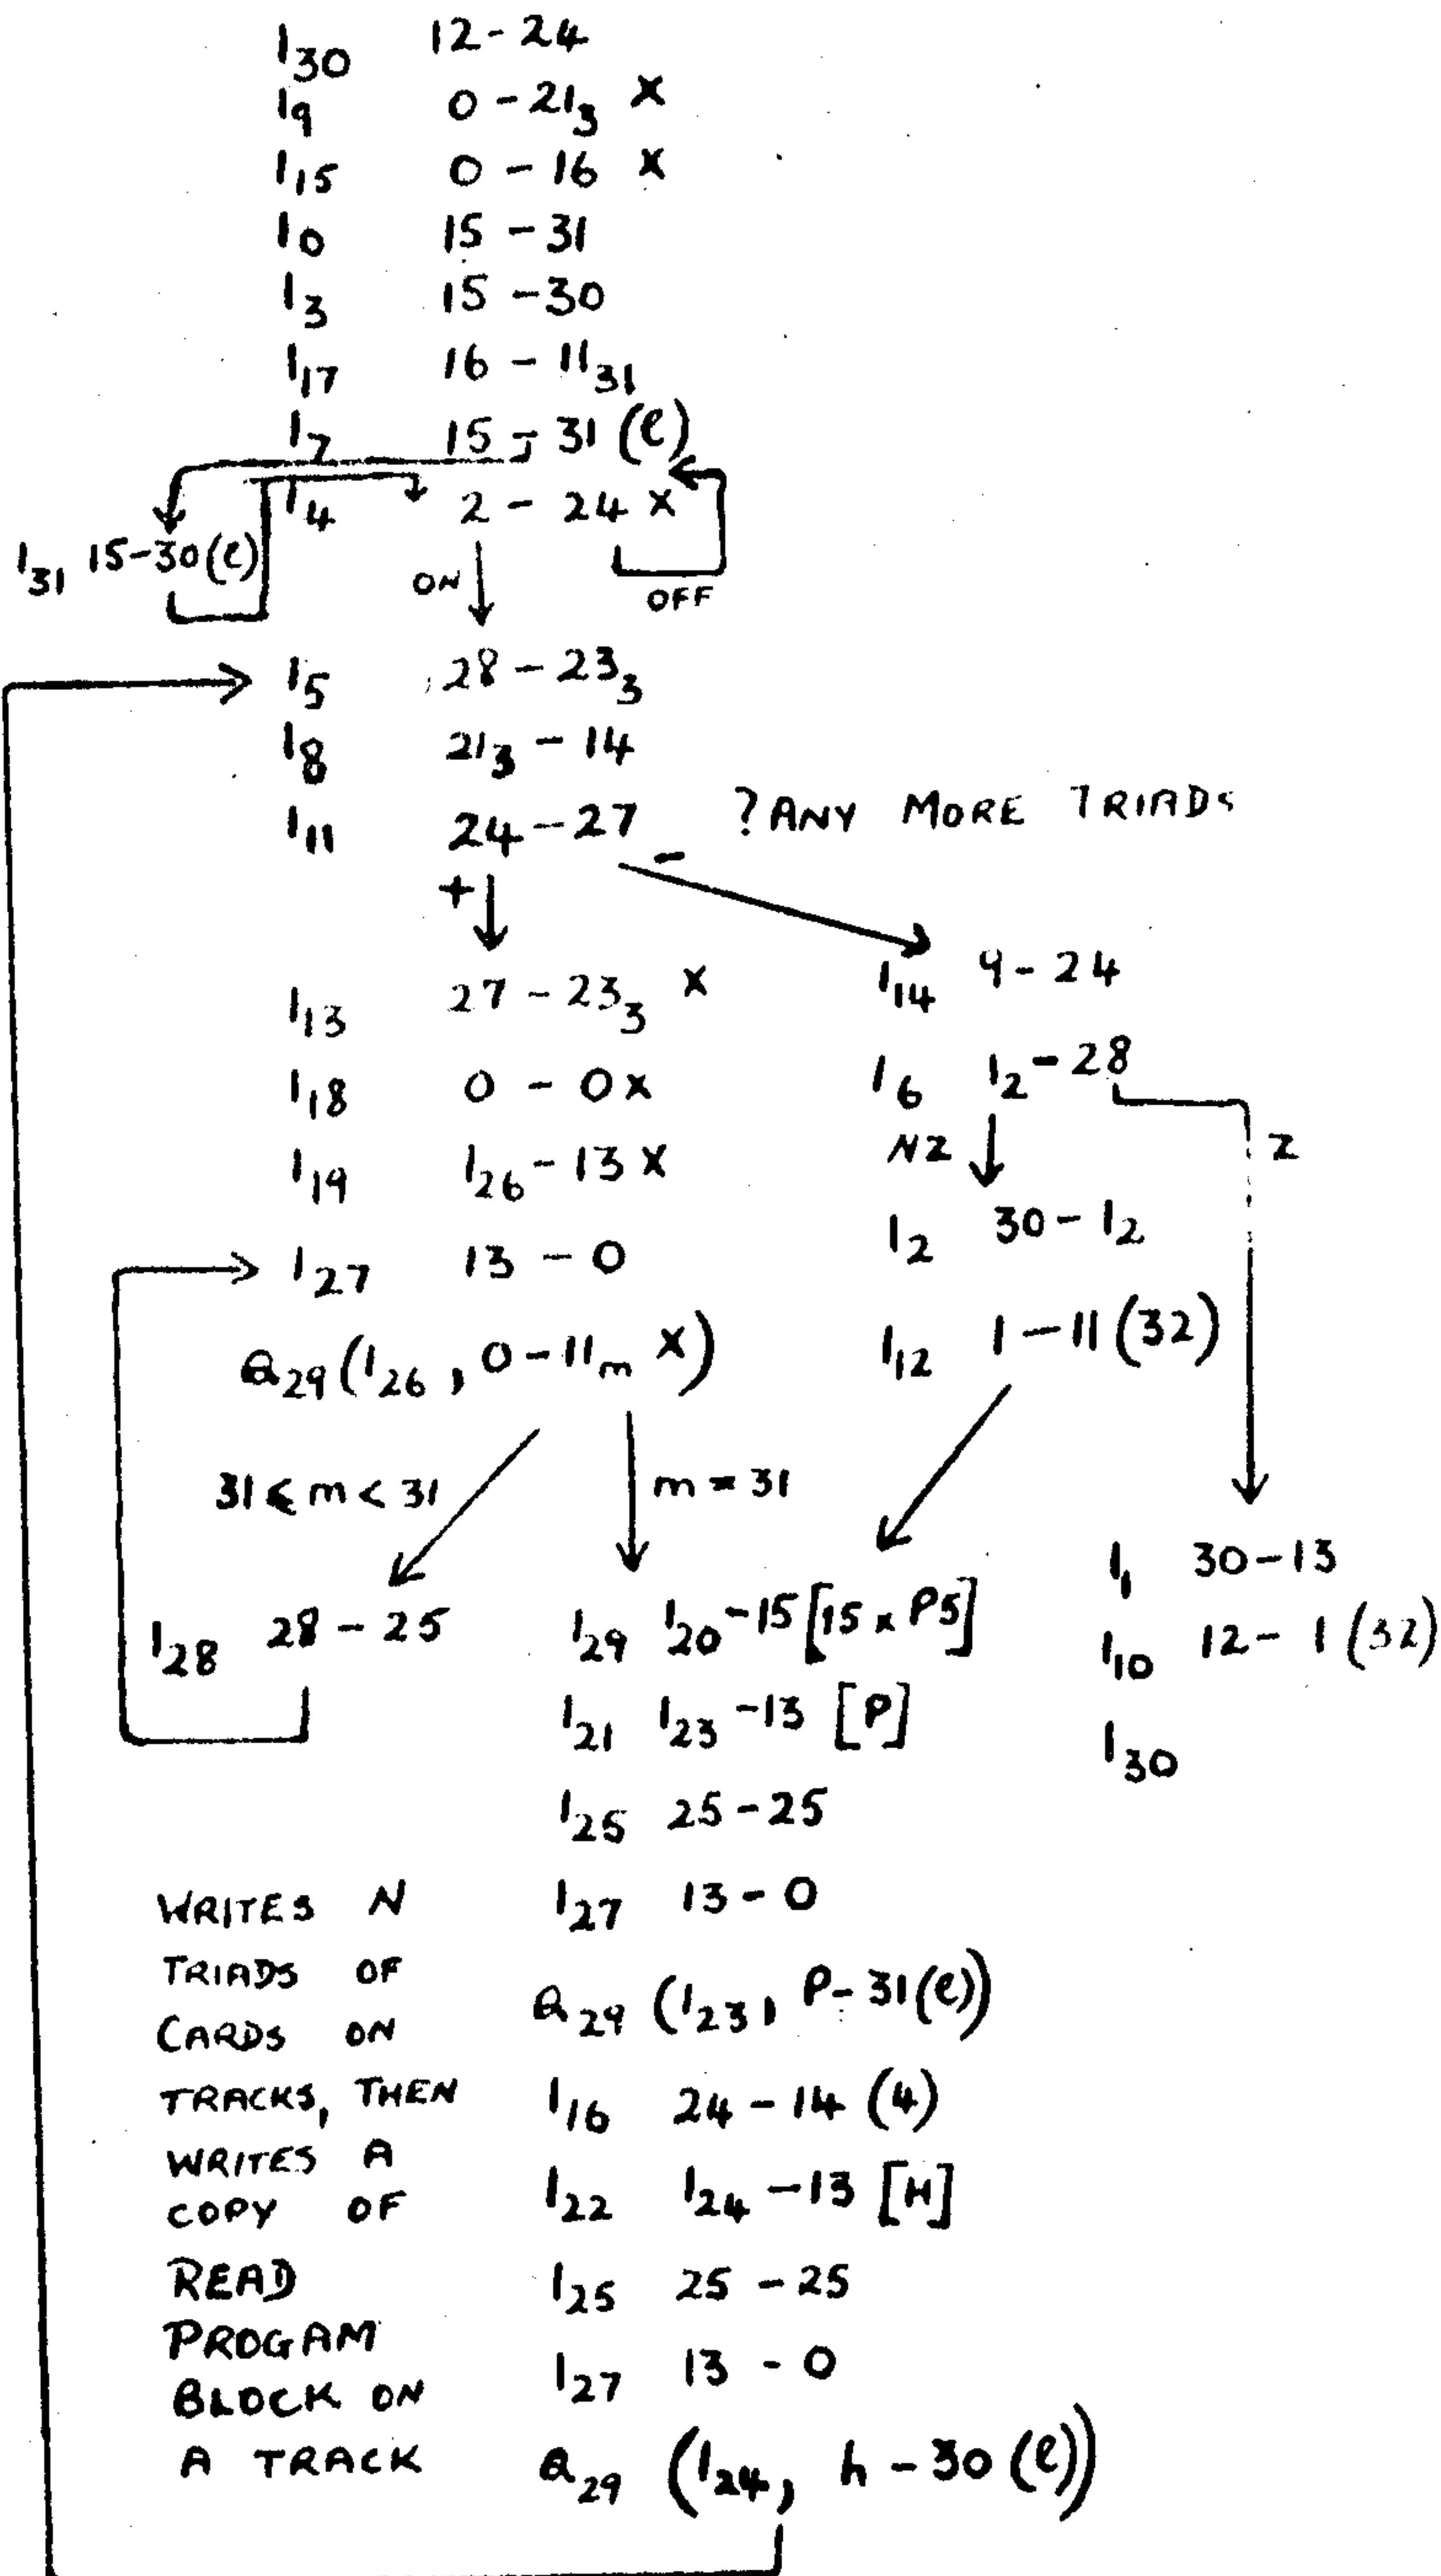 1₃₀ 12-24
1₉ 0-21₃ X
1₁₅ 0-16 X
1₀ 15-31
1₃ 15-30
1₁₇ 16-11₃₁
1₇ 15-31 (l)
1₄ 2-24 X
1₃₁ 15-30(l)
ON
OFF
1₅ 28-23₃
1₈ 21₃-14
1₁₁ 24-27 ? ANY MORE TRIADS
+
-
1₁₃ 27-23₃ X
1₁₈ 0-0 X
1₁₉ 1₂₆-13 X
1₂₇ 13-0
Q₂₉(1₂₆, 0-11ₘ X)
31 ≤ m < 31
m = 31
1₂₈ 28-25
1₁₄ 9-24
1₆ 1₂-28
NZ
Z
1₂ 30-1₂
1₁₂ 1-11(32)
1₁ 30-13
1₁₀ 12-1(32)
1₃₀
1₂₉ 1₂₀-15[15 x P5]
1₂₁ 1₂₃-13 [P]
1₂₅ 25-25
1₂₇ 13-0
Q₂₉ (1₂₃, P-31(l))
1₁₆ 24-14 (4)
1₂₂ 1₂₄-13 [H]
1₂₅ 25-25
1₂₇ 13-0
Q₂₉ (1₂₄, h-30(l))
WRITES N
TRIADS OF
CARDS ON
TRACKS, THEN
WRITES A
COPY OF
READ
PROGAM
BLOCK ON
A TRACK